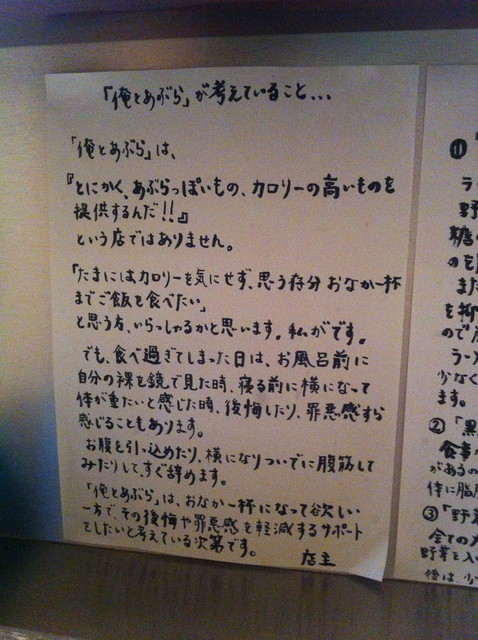 「俺とあぶら」が考えていること...
「俺とあぶら」は、
『とにかく、あぶらっぽいもの、カロリーの高いものを
提供するんだ!!』
という店ではありません。
「たまにはカロリーを気にせず、思う存分おなか一杯
までご飯を食べたい」
と思う方、いらっしゃるかと思います。私がです。
でも、食べ過ぎてしまった日は、お風呂前に
自分の裸を鏡で見た時、寝る前に横になって
体が重たいと感じた時、後悔したり、罪悪感すら
感じることもあります。
お腹を引っ込めたり、横になりついでに腹筋して
みたりして、すぐ辞めます。
「俺とあぶら」は、おなか一杯になって欲しい
一方で、その後悔や罪悪感を軽減するサポート
をしたいと考えている次第です。
店主
①「
ラー
野
糖の
のを
また
を抑
ので
ラーメ
少なく
ます。
②「黒
食事
があるの
体に脂
③「野菜
全てのメ
野菜を入